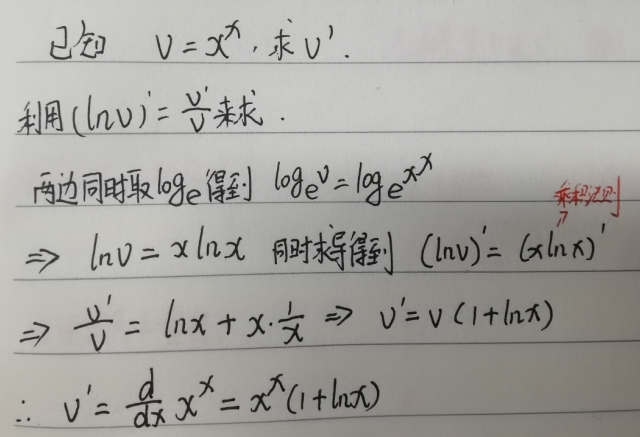 已知 v = x^x, 求 v'.
利用 (ln v)' = v'/v 来求.
两边同时取 log_e 得到 log_e^v = log_e^{x^x}
乘积法则
⇒ ln v = x ln x 同时求导得到 (ln v)' = (x ln x)'
⇒ v'/v = ln x + x · 1/x ⇒ v' = v (1 + ln x)
∴ v' = d/dx x^x = x^x (1 + ln x)